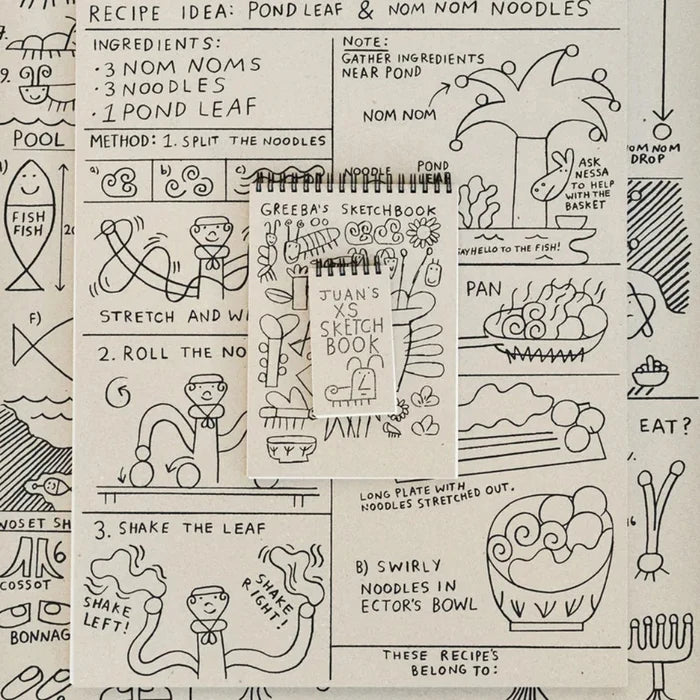 RECIPE IDEA: POND LEAF & NOM NOM NOODLES
INGREDIENTS:
·3 NOM NOMS
·3 NOODLES
·1 POND LEAF
METHOD: 1. SPLIT THE NOODLES
a)
b)
c)
NOODLE
STRETCH AND
2. ROLL THE
3. SHAKE THE LEAF
SHAKE
LEFT!
SHAKE
RIGHT!
NOTE:
GATHER INGREDIENTS
NEAR POND
NOM NOM
POND
LEAF
ASK
NESSA
TO HELP
WITH THE
BASKET
SAY HELLO TO THE FISH!
PAN
LONG PLATE WITH
NOODLES STRETCHED OUT.
B) SWIRLY
NOODLES IN
ECTOR'S BOWL
THESE RECIPE'S
BELONG TO:
GREEBA'S SKETCHBOOK
JUAN'S
XS
SKETCH
BOOK
9.
POOL
FISH
FISH
F)
COSSOT
BONNAG
NOM NOM
DROP
EAT?